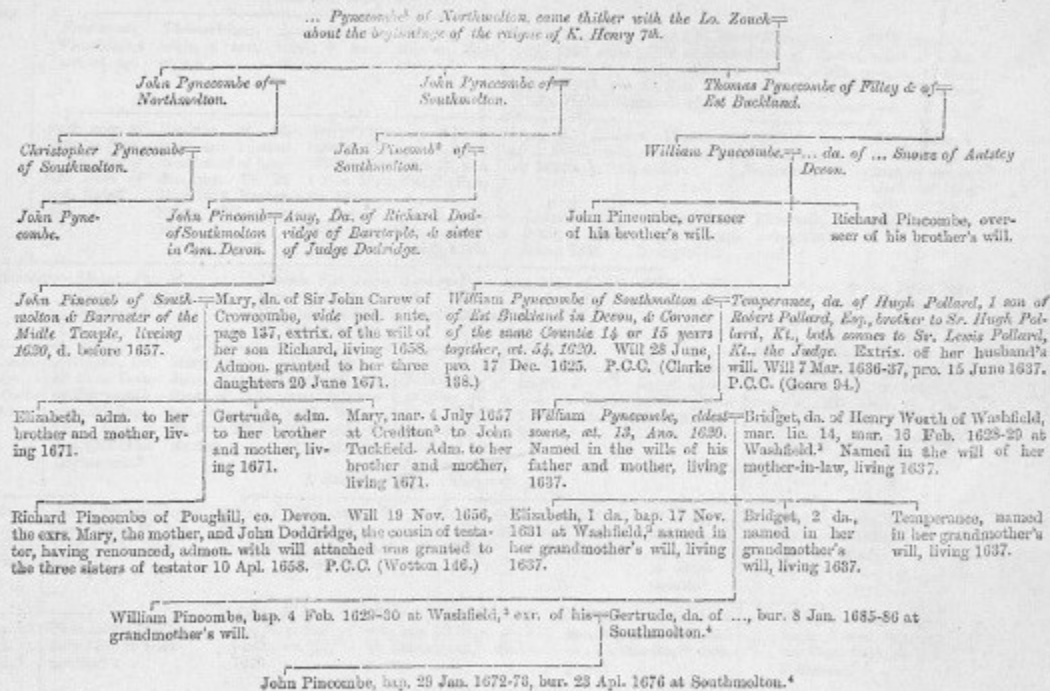 ... Pynecombe¹ of Northmolton, came thither with the Lo. Zouch
about the beginninge of the raigne of K. Henry 7th.
John Pynecombe of
Northmolton.
John Pynecombe of
Southmolton.
Thomas Pynecombe of Filley & of
Est Buckland.
Christopher Pynecombe
of Southmolton.
John Pincomb² of
Southmolton.
William Pynecombe.
... da. of ... Snowe of Antstey
Devon.
John Pyne-
combe.
John Pincomb
of Southmolton
in Com. Devon.
Amy, Da. of Richard Dod-
ridge of Barstaple, & sister
of Judge Dodridge.
John Pincombe, overseer
of his brother's will.
Richard Pincombe, over-
seer of his brother's will.
John Pincomb of South-
molton & Barrester of the
Midle Temple, liveing
1620, d. before 1657.
Mary, da. of Sir John Carew of
Crowcombe, vide ped. ante,
page 137, extrix. of the will of
her son Richard, living 1658.
Admon. granted to her three
daughters 20 June 1671.
William Pynecombe of Southmolton &
of Est Buckland in Devon, & Coroner
of the same Countie 14 or 15 years
together, æt. 54, 1620. Will 28 June,
pro. 17 Dec. 1625. P.C.C. (Clarke
138.)
Temperance, da. of Hugh Pollard, 1 son of
Robert Pollard, Esq., brother to Sr. Hugh Pol-
lard, Kt., both sonnes to Sr. Lewis Pollard,
Kt., the Judge. Extrix. of her husband's
will. Will 7 Mar. 1636-37, pro. 15 June 1637.
P.C.C. (Goare 94.)
Elizabeth, adm. to her
brother and mother, liv-
ing 1671.
Gertrude, adm.
to her brother
and mother, liv-
ing 1671.
Mary, mar. 4 July 1657
at Crediton⁵ to John
Tuckfield. Adm. to her
brother and mother,
living 1671.
William Pynecombe, eldest
sonne, æt. 13, Ano. 1620.
Named in the wills of his
father and mother, living
1637.
Bridget, da. of Henry Worth of Washfield,
mar. lic. 14, mar. 16 Feb. 1628-29 at
Washfield.³ Named in the will of her
mother-in-law, living 1637.
Richard Pincombe of Poughill, co. Devon. Will 19 Nov. 1656,
the exrs. Mary, the mother, and John Doddridge, the cousin of testa-
tor, having renounced, admon. with will attached was granted to
the three sisters of testator 10 Apl. 1658. P.C.C. (Wotton 146.)
Elizabeth, 1 da., bap. 17 Nov.
1631 at Washfield,³ named in
her grandmother's will, living
1637.
Bridget, 2 da.,
named in her
grandmother's
will, living 1637.
Temperance, named
in her grandmother's
will, living 1637.
William Pincombe, bap. 4 Feb. 1629-30 at Washfield,³ exr. of his
grandmother's will.
Gertrude, da. of ..., bur. 8 Jan. 1685-86 at
Southmolton.⁴
John Pincombe, bap. 29 Jan. 1672-73, bur. 23 Apl. 1676 at Southmolton.⁴